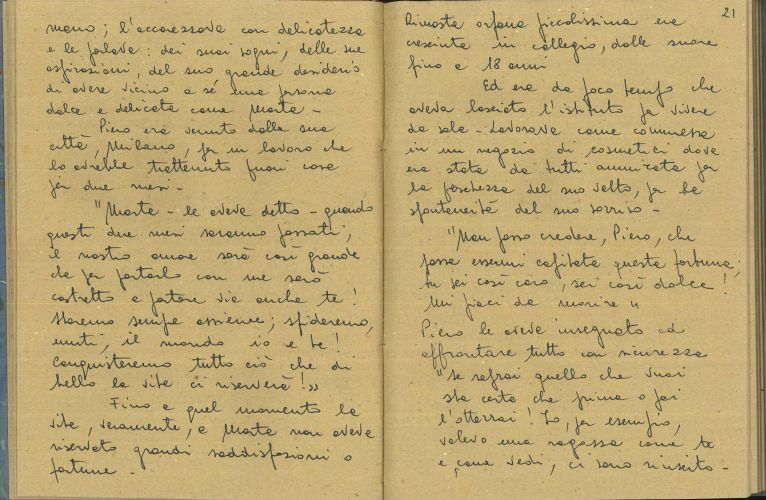 mano; l'accarezzava con delicatezza
e le parlava: dei suoi sogni, delle sue
aspirazioni, del suo grande desiderio
di avere vicino a sé una persona
dolce e delicata come Marta -
Piero era venuto dalla sua
città, Milano, per un lavoro che
lo avrebbe trattenuto fuori casa
per due mesi -
"Marta - le aveva detto - quando
questi due mesi saranno passati,
il nostro amore sarà così grande
che per portarlo con me sarò
costretto a portare via anche te!
Staremo sempre assieme; sfideremo,
uniti, il mondo io e te!
Conquisteremo tutto ciò che di
bello la vita ci riserverà!"
Fino a quel momento la
vita, veramente, a Marta non aveva
riservato grandi soddisfazioni o
fortune -
21
Rimasta orfana piccolissima era
cresciuta in collegio, dalle suore
fino a 18 anni
Ed era da poco tempo che
aveva lasciato l'istituto per vivere
da sola - Lavorava come commessa
in un negozio di cosmetici dove
era stata da tutti ammirata per
la freschezza del suo volto, per la
spontaneità del suo sorriso -
"Non posso credere, Piero, che
possa essermi capitata questa fortuna;
tu sei così caro, sei così dolce!
Mi piaci da morire"
Piero le aveva insegnato ad
affrontare tutto con sicurezza
"Se saprai quello che vuoi
sta certa che prima o poi
l'otterrai! Io, per esempio,
volevo una ragazza come te
e, come vedi, ci sono riuscito -